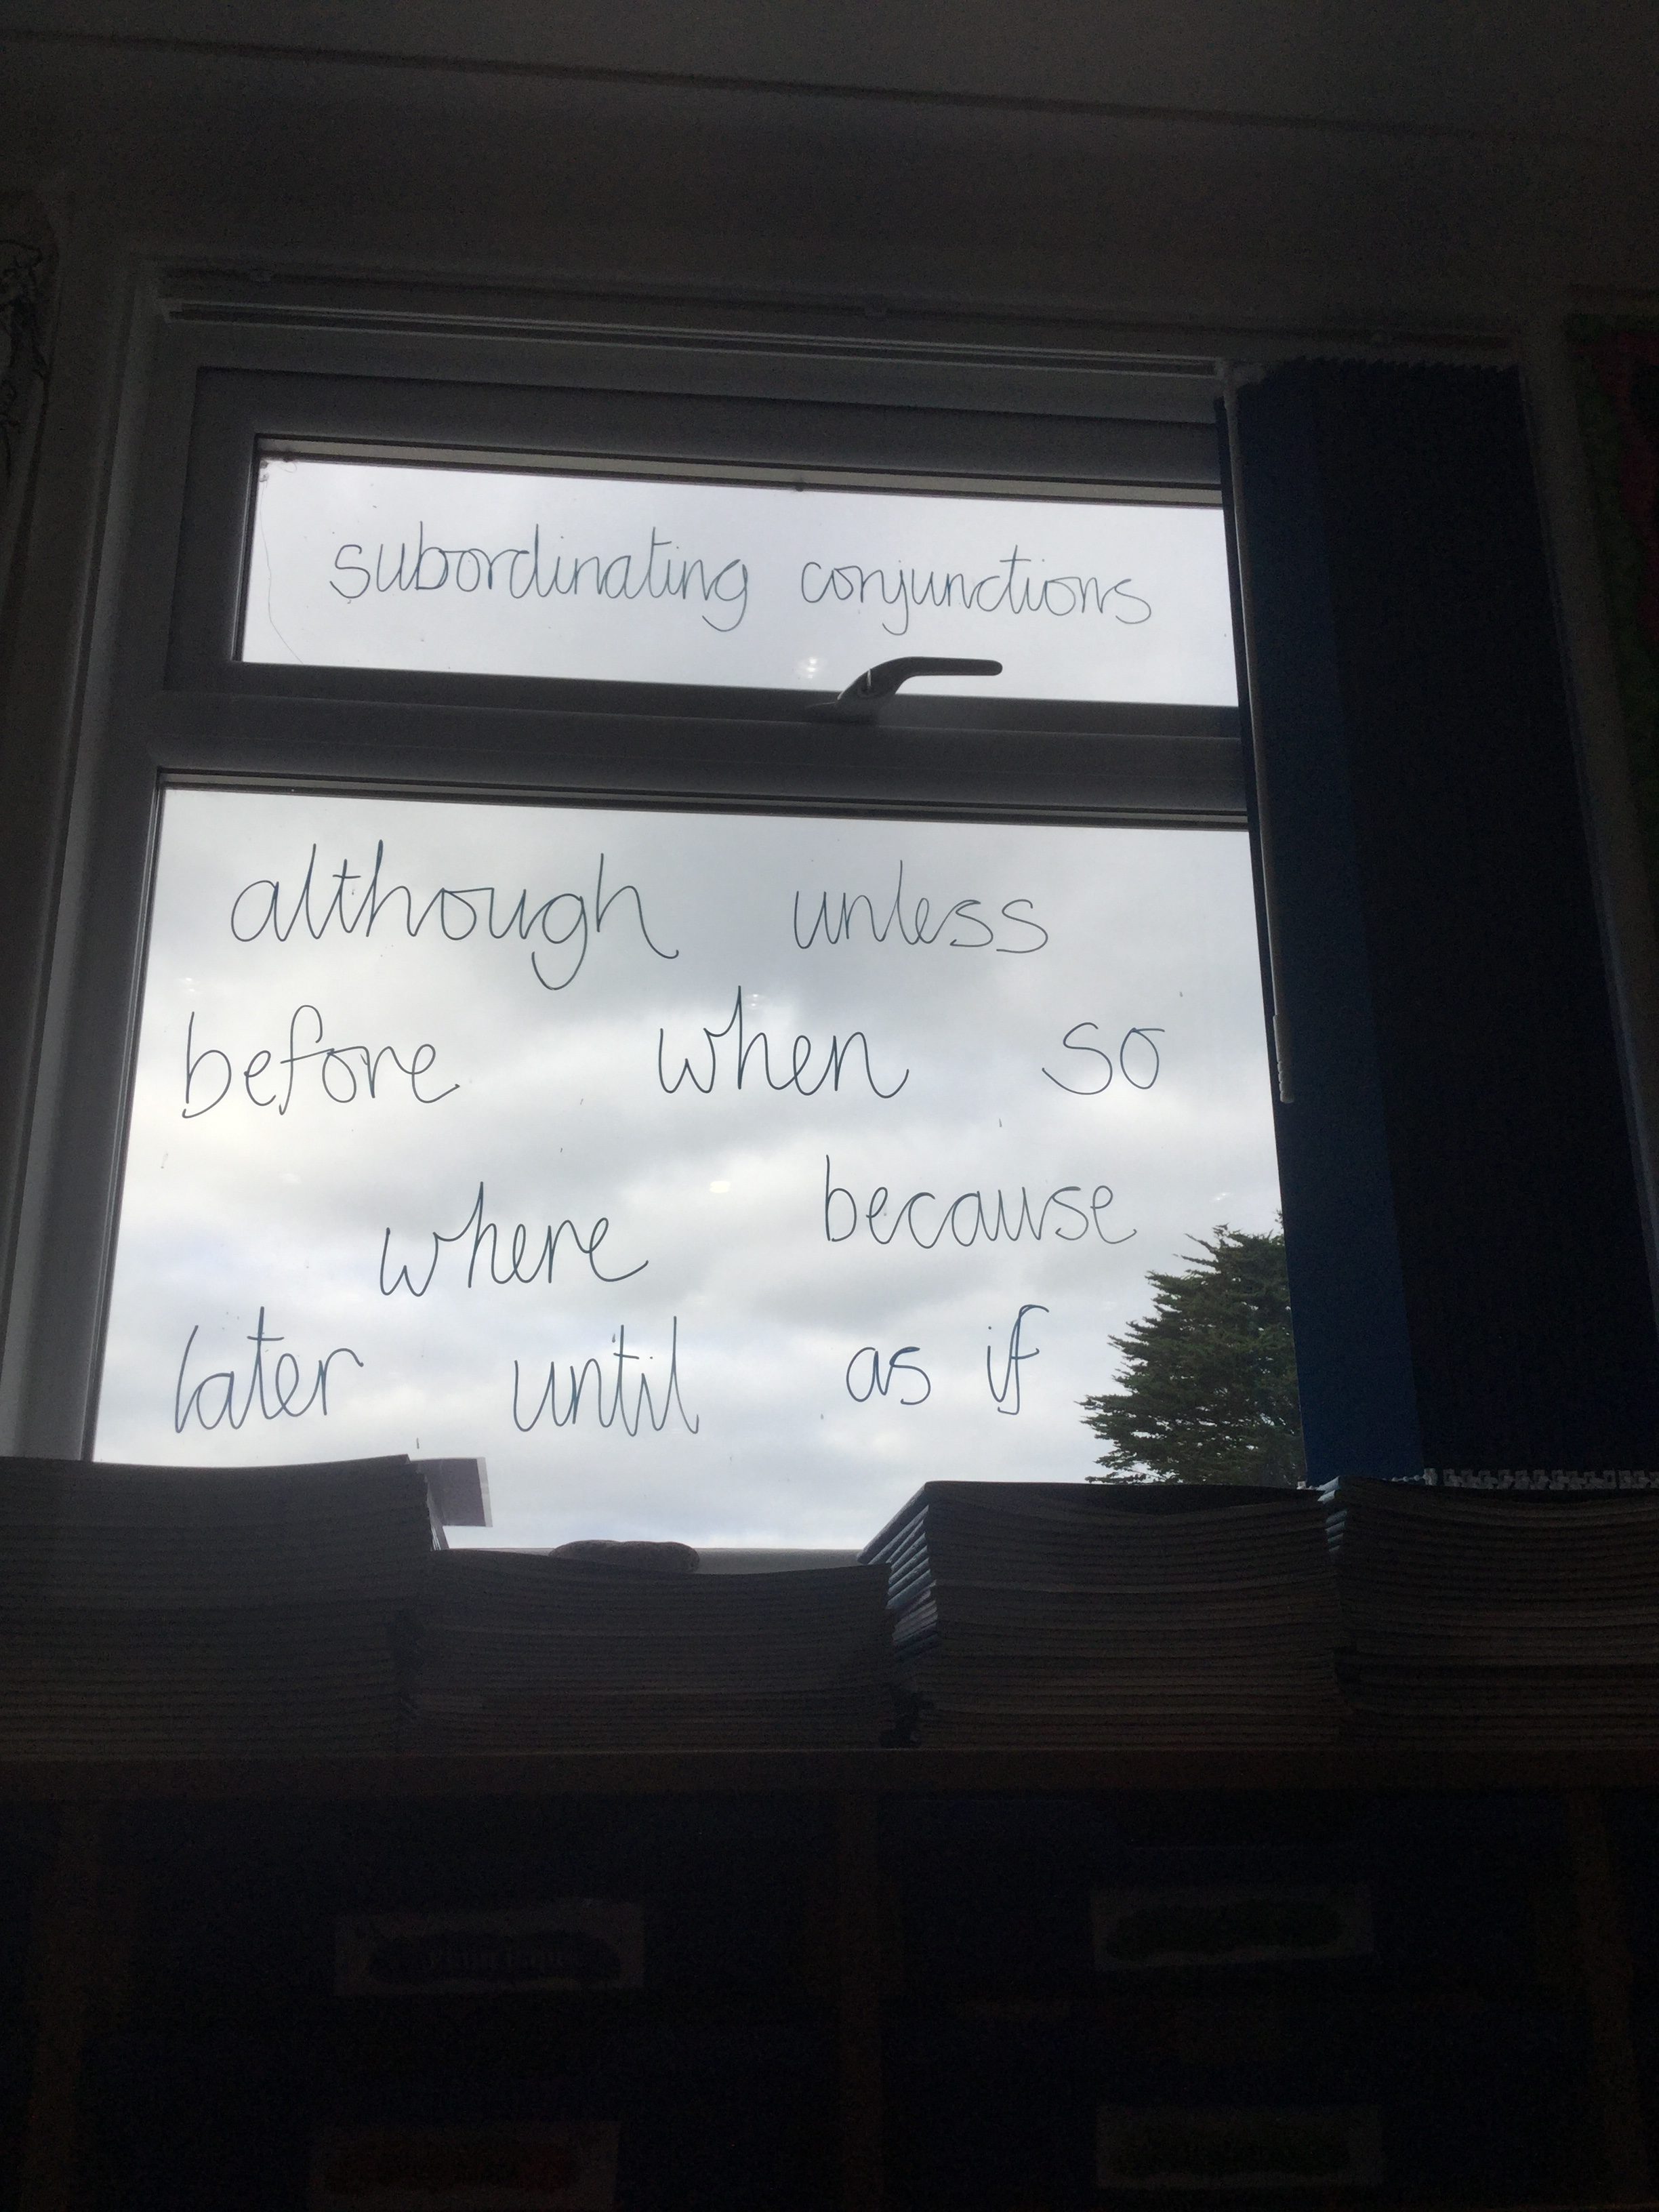 subordinating conjunctions
although unless
before when so
where because
later until as if